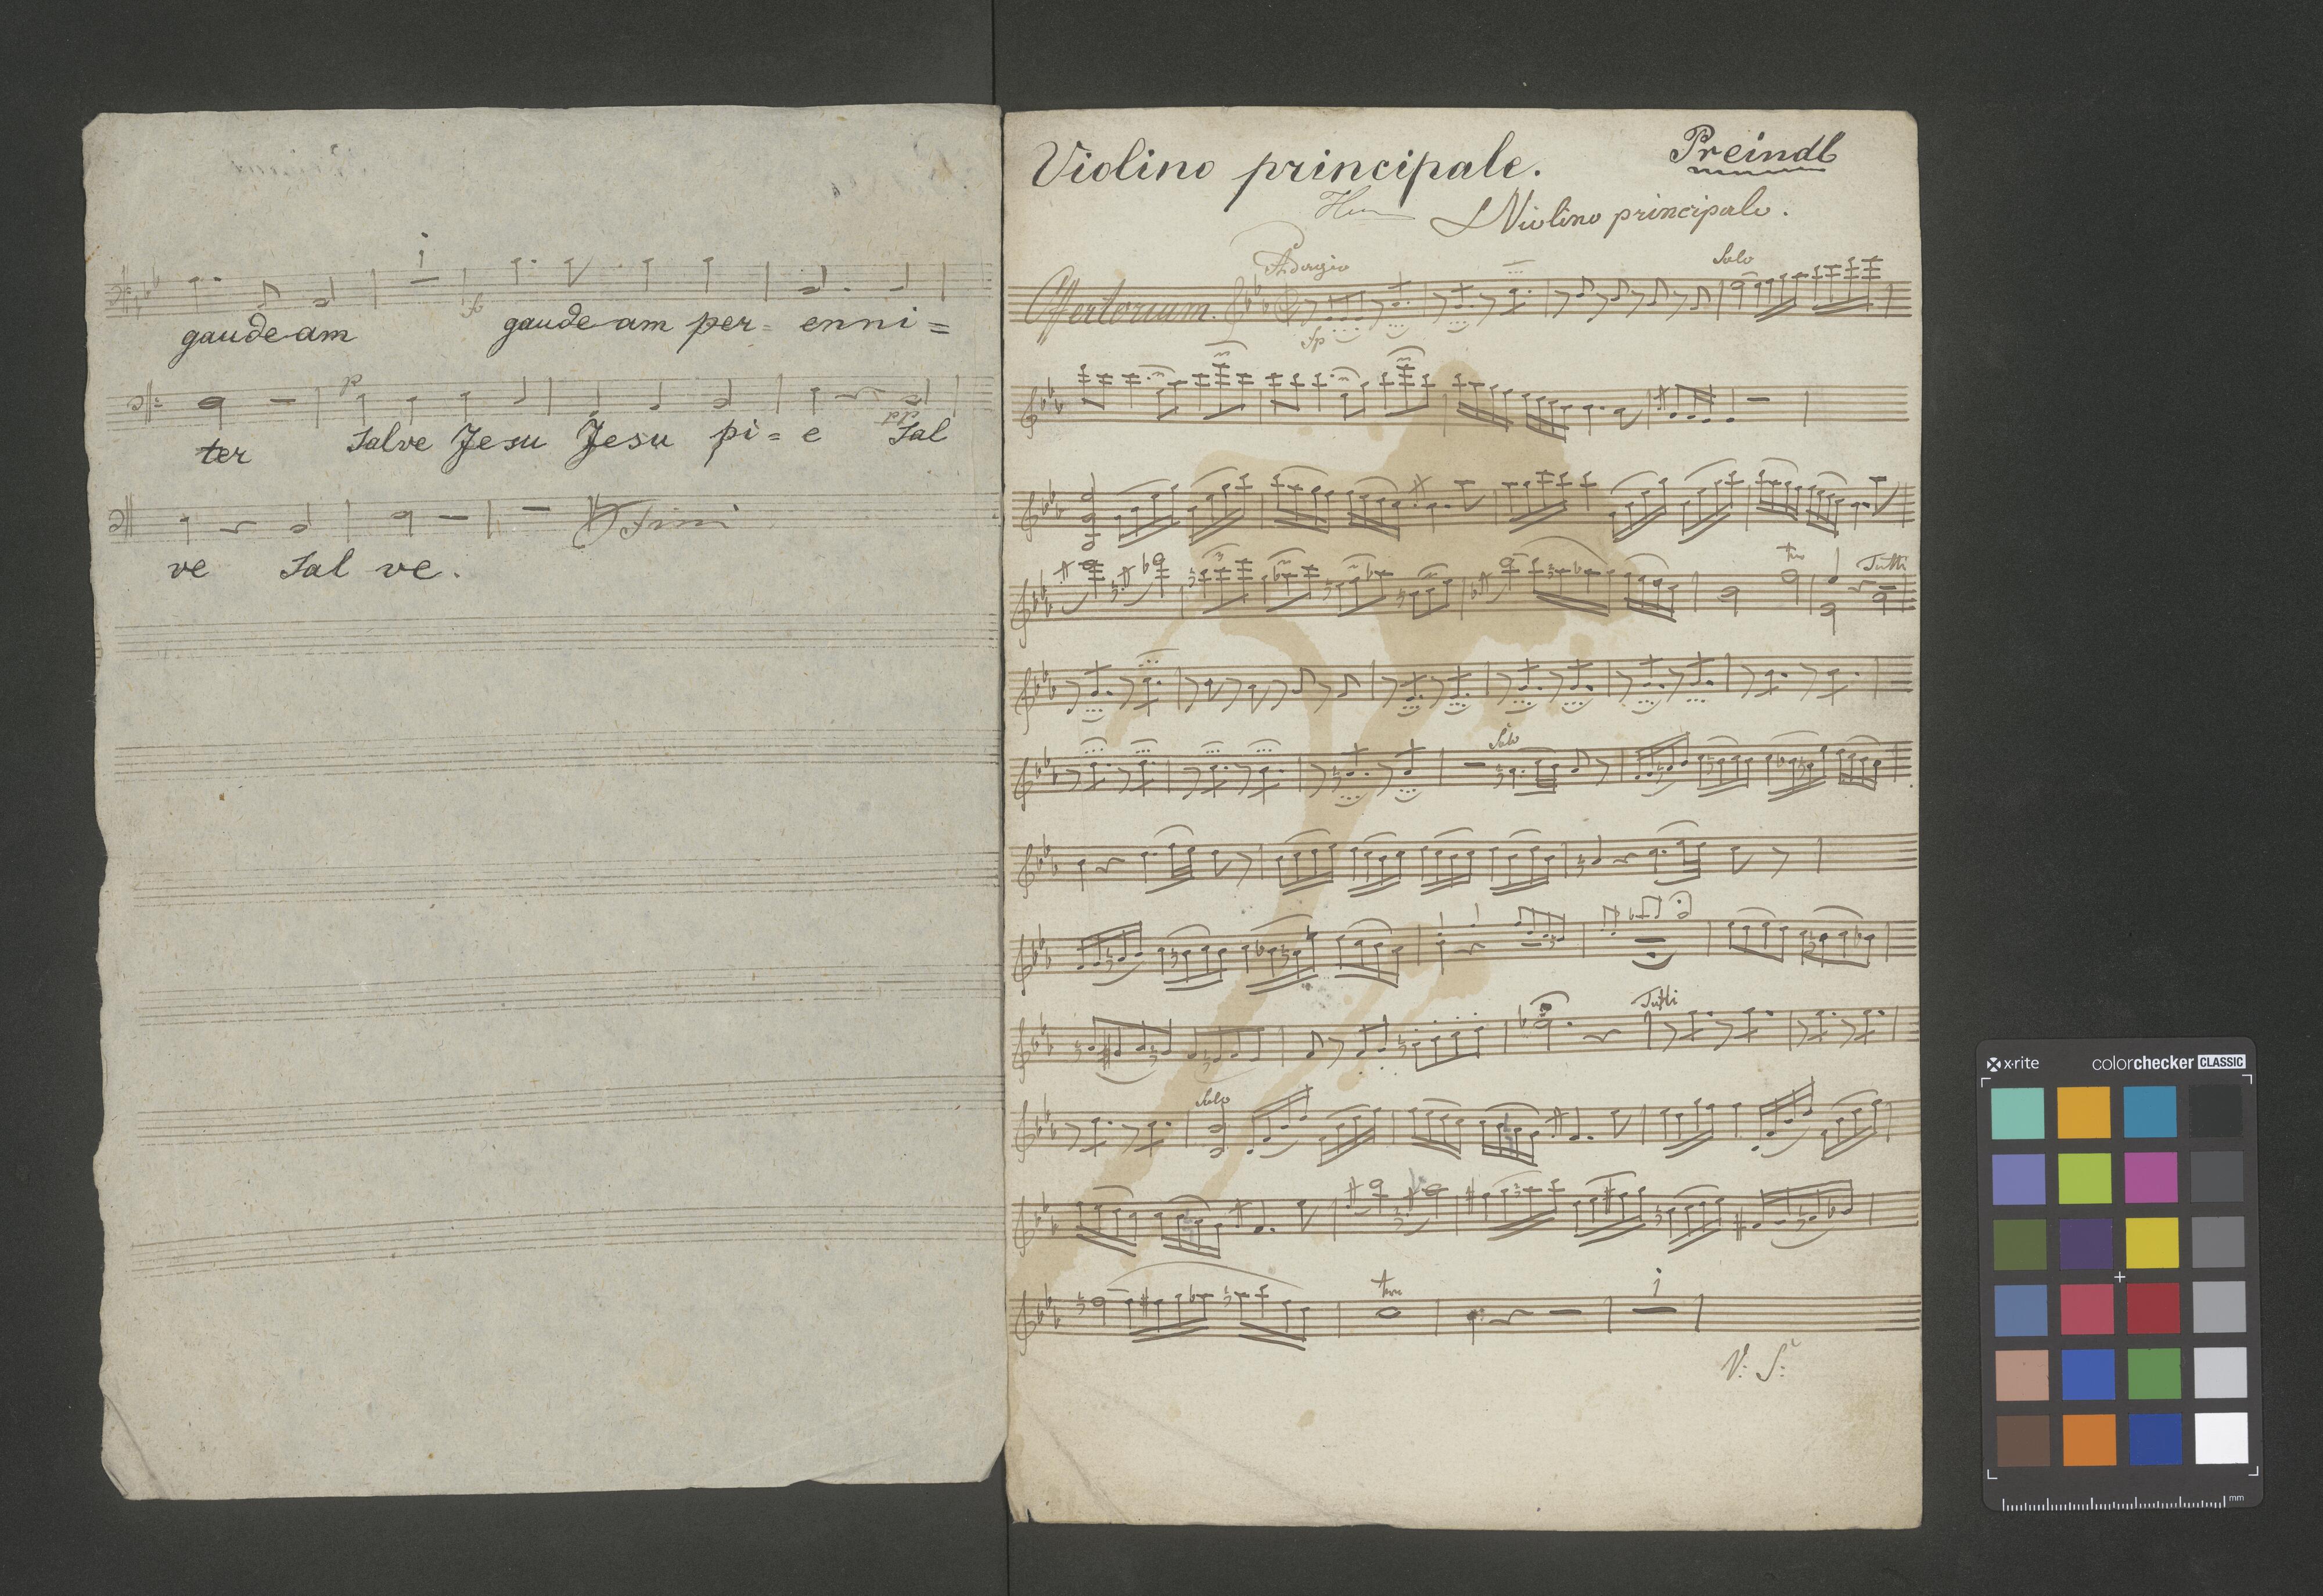 gaudeam gaudeam per= enni=
ter Salve Jesu Jesu pi=e Sal
ve Sal ve.
Fine
Violino principale.
Preindl
Violino principale.
Adagio
Solo
Offertorium.
Tutti
Solo
Tutti
Solo
V: S:
x·rite colorchecker CLASSIC
mm